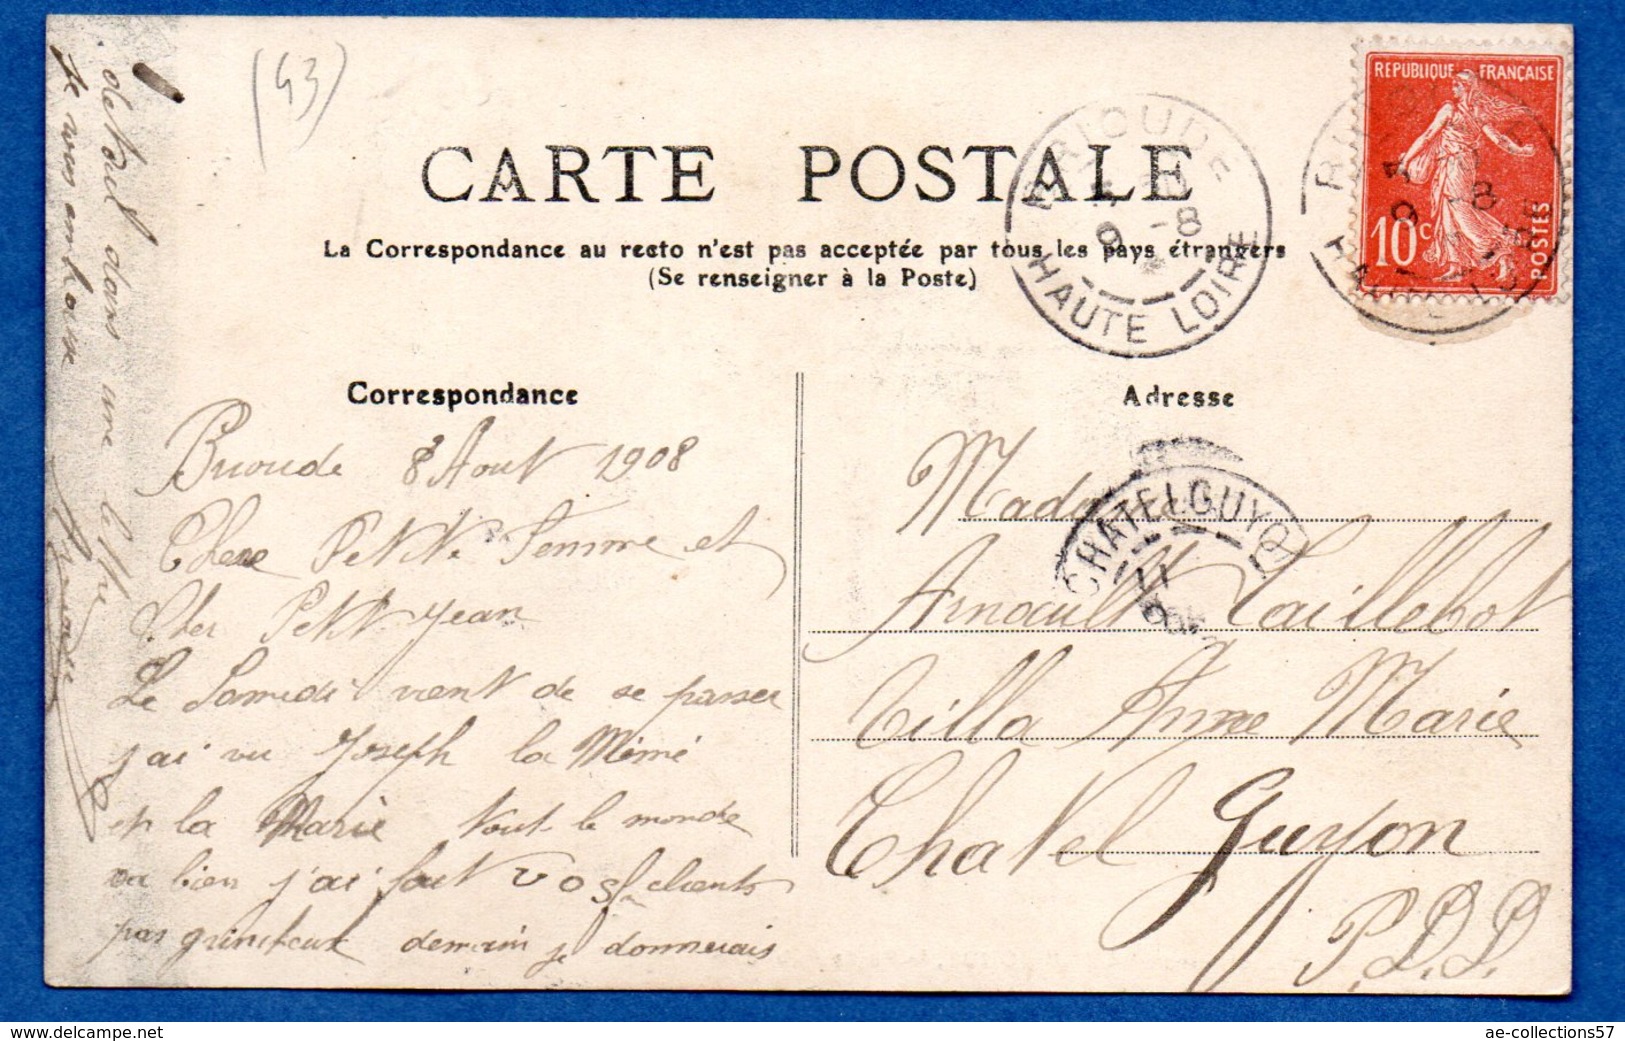 (43)
CARTE POSTALE
La Correspondance au recto n'est pas acceptée par tous les pays étrangers
(Se renseigner à la Poste)
BRIOUDE
9 -8
HAUTE LOIRE
REPUBLIQUE FRANÇAISE
10c
POSTES
Correspondance
Brioude 8 Aout 1908
Chere Petite Femme et
Cher Petit Jean
Le Samedi vient de se passer
j'ai vu Joseph la Mémé
et la Marie tout le monde
va bien j'ai fait vos clients
pas grincheux demain je donnerais
detail dans une lettre
Je vous embrasse
Adresse
CHATELGUYON
11
Madame
Arnault Taillebot
Villa Anne Marie
Chatel Guyon
P.D.D.
delcampe.net
ae-collections57